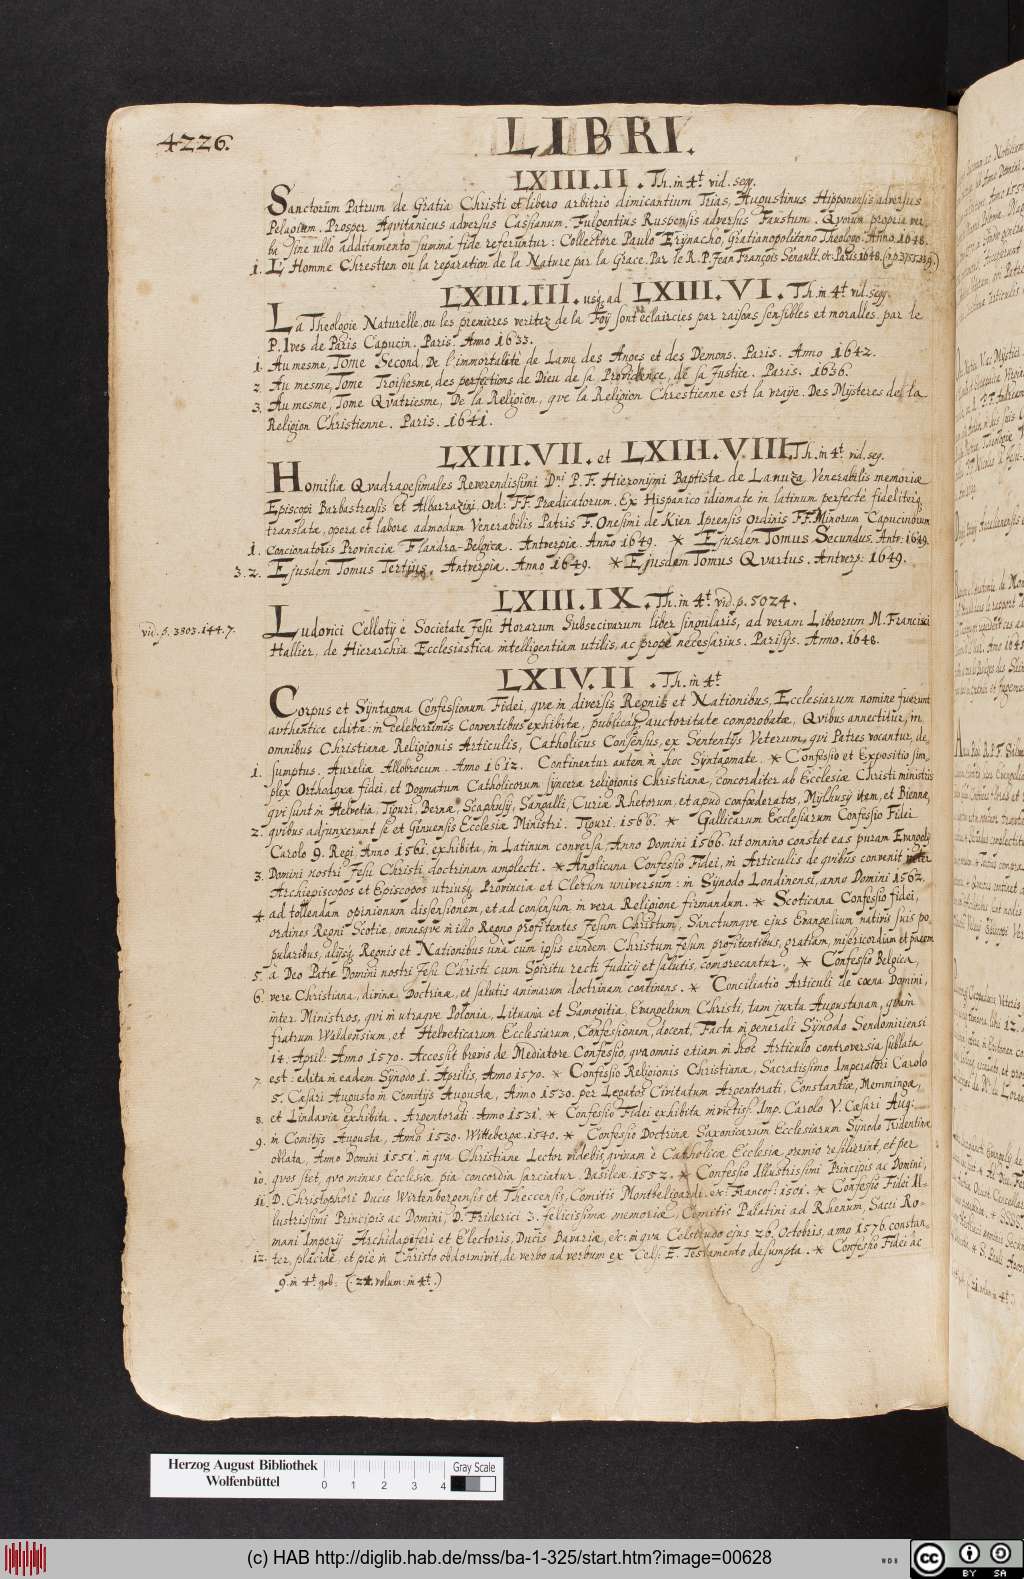 4226.
LIBRI.
LXIII.II. Th. in 4t vid. segg.
Sanctorum Patrum de Gratia Christi et libero arbitrio dimicantium Trias, Augustinus Hipponensis adversus
Pelagium, Prosper Aqvitanicus adversus Cassianum, Fulgentius Ruspensis adversus Faustum. Qvorum propria ver,
ba sine ullo additamento summa fide referuntur: Collectore Paulo Erynacho, Gratianopolitano Theologo. Anno 1648.
1. L' Homme Chrestien ou la reparation de la Nature par la Grace. Par le R. P. Jean François Senault. Paris 1648.
LXIII.III. usq ad LXIII.VI. Th. in 4t vid. segg.
La Theologie Naturelle, ou les premieres veritez de la Foÿ sont éclaircies par raisons sensibles et moralles, par le
P. Ives de Paris Capucin. Paris. Anno 1633.
1. Au mesme, Tome Second, De l'immortalité de Lame des Anges et des Demons. Paris. Anno 1642.
2. Au mesme, Tome Troisiesme, des perfections de Dieu de sa Providence, de sa Justice. Paris. 1636.
3. Au mesme, Tome Qvatriesme, De la Religion, qve la Religion Chrestienne est la vraÿe. Des Mÿsteres de la
Religion Christienne. Paris. 1641.
LXIII.VII. et LXIII.VIII. Th. in 4t. vid. seg.
Homiliæ Qvadragesimales Reverendissimi Dni P. F. Hieronÿmi Baptistæ de Lanuza Venerabilis memoriæ
Episcopi Barbastrensis et Albarrazini Ord: FF. Prædicatorum. Ex Hispanico idiomate in latinum perfectè fideliterq
translatæ, opera et labore admodum Venerabilis Patris F. Onesimi de Kien Iprensis Ordinis FF. Minorum Capucinorum
1. Concionatoris Provinciæ Flandro-Belgicæ. Antverpiæ. Anno 1649. * Ejusdem Tomus Secundus. Antv: 1649.
3. 2. Ejusdem Tomus Tertius. Antverpiæ. Anno 1649. * Ejusdem Tomus Qvartus. Antverp: 1649.
LXIII.IX. Th. in 4t. vid. p. 5024.
vid. p. 3803.144.7.
Ludovici Cellotij è Societate Jesu Horarum Subsecivarum liber singularis, ad veram Librorum M. Francisci
Hallier, de Hierarchia Ecclesiastica intelligentiam utilis, ac propè necessarius. Parisijs. Anno. 1648.
LXIV.II. Th. in 4t
Corpus et Sÿntagma Confessionum Fidei, qvæ in diversis Regnis et Nationibus, Ecclesiarum nomine fuerunt
authenticè editæ: in celeberrimis Conventibus exhibitæ, publicaq auctoritate comprobatæ, Qvibus annectitur, in
omnibus Christianæ Religionis Articulis, Catholicus Consensus, ex Sententijs Veterum, qvi Patres vocantur, de,
1. sumptus. Aureliæ Allobrocum. Anno 1612. Continentur autem in hoc Sÿntagmate. * Confessio et Expositio sim,
plex Orthodoxæ fidei, et Dogmatum Catholicorum sÿnceræ religionis Christianæ, concorditer ab Ecclesiæ Christi ministris
qvi sunt in Helvetia, Tiguri, Bernæ, Scaphusij, Sangalli, Curiæ Rhetorum, et apud confœderatos, Mÿlhusij item, et Biennæ,
2. qvibus adjunxerunt se et Genuensis Ecclesiæ Ministri. Tiguri. 1566. * Gallicarum Ecclesiarum Confessio Fidei
Carolo 9. Regi, Anno 1561. exhibita, in Latinum conversa Anno Domini 1566. ut omnino constet eas puram Evangelij
3. Domini nostri Jesu Christi doctrinam amplecti. * Anglicana Confessio Fidei, in Articulis de qvibus convenit inter
Archiepiscopos et Episcopos utriusq Provinciæ et Clerum universum: in Sÿnodo Londinensi, anno Domini 1562.
4. ad tollendam opinionum dissensionem, et ad consensum in vera Religione firmandum. * Scoticana Confessio fidei,
ordines Regni Scotiæ, omnesqve in illo Regno profitentes Jesum Christum, Sanctumqve ejus Evangelium nativis suis po,
pularibus, alijsq Regnis et Nationibus una cum ipsis eundem Christum Jesum profitentibus, gratiam, misericordiam et pacem
5. à Deo Patre Domini nostri Jesu Christi cum Spiritu recti Judicij et salutis, comprecantur. * Confessio Belgica,
6. verè Christiana, divinæ Doctrinæ, et salutis animarum doctrinam continens. * Conciliatio Articuli de cœna Domini,
inter Ministros, qvi in utraqve Polonia, Lituania et Samogitia Evangelium Christi, tam juxta Augustanam, qvam
fratrum Waldensium, et Helveticarum Ecclesiarum, Confessionem, docent, Facta in generali Sÿnodo Sendomiriensi
14. April: Anno 1570. Accessit brevis de Mediatore Confessio, qva omnis etiam in hoc Articulo controversia sublata
7. est: edita in eadem Sÿnodo 1. Aprilis, Anno 1570. * Confessio Religionis Christianæ, Sacratissimo Imperatori Carolo
5. Cæsari Augusto in Comitijs Augustæ, Anno 1530. per Legatos Civitatum Argentorati, Constantiæ, Memmingæ,
8. et Lindaviæ exhibita. Argentorati Anno 1531. * Confessio Fidei exhibita invictiss. Imp. Carolo V. Cæsari Aug:
9. in Comitijs Augustæ, Anno 1530. Witteberga. 1540. * Confessio Doctrinæ Saxonicarum Ecclesiarum Sÿnodo Tridentinæ
oblata, Anno Domini 1551. in qva Christiane Lector videbis, qvinam è Catholicæ Ecclesiæ gremio resilierint, et per
10. qvos stet, qvo minus Ecclesiæ pia concordia sarciatur. Basileæ. 1552. * Confessio Illustrissimi Principis ac Domini,
11. D. Christophori Ducis Wirtenbergensis et Theccensis, Comitis Montbeligardi. * Confessio Fidei Il-
lustrissimi Principis ac Domini, D. Friderici 3. felicissimæ memoriæ, Comitis Palatini ad Rhenum, Sacri Ro-
mani Imperij Archidapiferi et Electoris, Ducis Bavariæ, etc: in qva Celsitudo ejus 26. Octobris, anno 1576. constan-
12. ter, placidè, et piè in Christo obdormivit, de verbo ad verbum ex Cels: E. Testamento desumpta. * Confessio Fidei ac
9. in 4t. geb: (: 21. volum: in 4t.)
Herzog August Bibliothek
Wolfenbüttel
0 1 2 3 4
Gray Scale
(c) HAB http://diglib.hab.de/mss/ba-1-325/start.htm?image=00628
WDB
cc BY SA